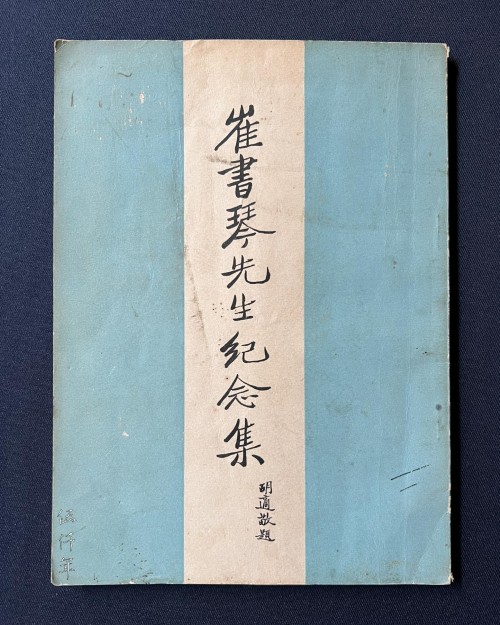 崔書琴先生紀念集
胡適敬題